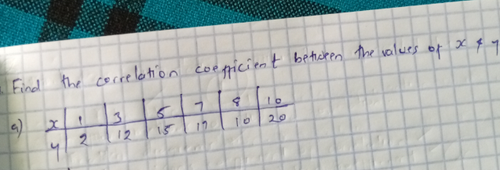 Find the correlation coefficient between the values of x & y
a) x | 1 | 3 | 5 | 7 | 8 | 10
y | 2 | 12 | 15 | 17 | 10 | 20